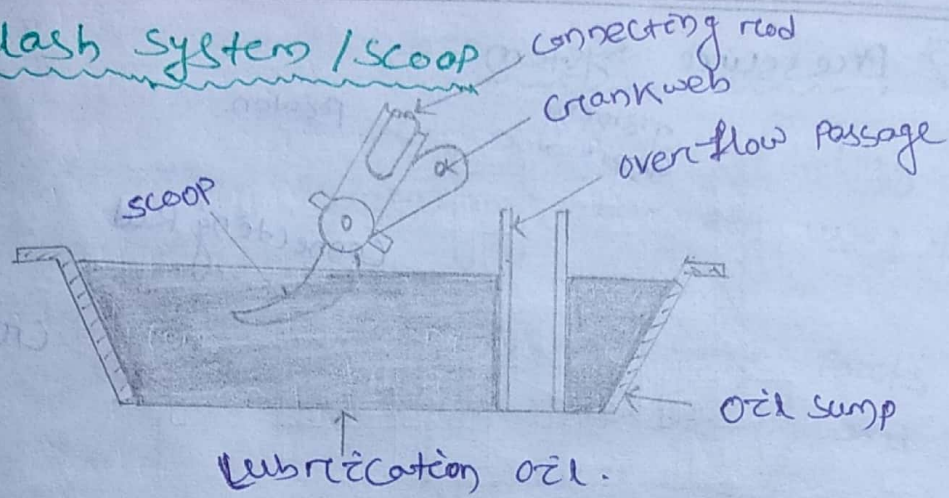 lash system / scoop
connecting rod
crankweb
overflow passage
scoop
oil sump
Lubrication oil.